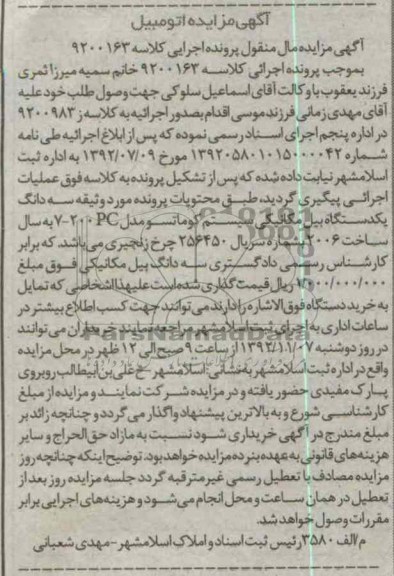 آگهی مزایده اتومبیل
آگهی مزایده مال منقول پرونده اجرایی کلاسه ۹۲۰۰۱۶۳
بموجب پرونده اجرائی کلاسه ۹۲۰۰۱۶۳ خانم سمیه میرزا ثمری
فرزند یعقوب با وکالت آقای اسماعیل سلوکی جهت وصول طلب خود علیه
آقای مهدی زمانی فرزند موسی اقدام بصدور اجرائیه به کلاسه ز ۹۲۰۰۹۸۳
در اداره پنجم اجرای اسناد رسمی نموده که پس از ابلاغ اجرائیه طی نامه
شماره ۱۳۹۲۰۵۸۰۱۰۱۵۰۰۰۰۴۲ مورخ ۱۳۹۲/۰۷/۰۹ به اداره ثبت
اسلامشهر نیابت داده شده که پس از تشکیل پرونده به کلاسه فوق عملیات
اجرائی پیگیری گردید، طبق محتویات پرونده مورد وثیقه سه دانگ
یکدستگاه بیل مکانیکی سیستم کوماتسو مدل PC ۲۰۰-۷ به سال
ساخت ۲۰۰۶ بشماره سریال ۲۵۶۴۵۰ چرخ زنجیری می باشد. که برابر
کارشناس رسمی دادگستری سه دانگ بیل مکانیکی فوق مبلغ
ریال قیمت گذاری شده است علیهذا اشخاصی که تمایل
به خرید دستگاه فوق الاشاره را دارند می توانند جهت کسب اطلاع بیشتر در
ساعات اداری به اجرای ثبت اسلامشهر مراجعه نمایند خریداران می توانند
در روز دوشنبه ۱۳۹۲/۱۱/۰۷ از ساعت ۹ صبح الی ۱۲ ظهر در محل مزایده
واقع در اداره ثبت اسلامشهر به نشانی: اسلامشهر خ علی بن ابیطالب روبروی
پارک مفیدی حضور یافته و در مزایده شرکت نمایند و مزایده از مبلغ
کارشناسی شروع و به بالاترین پیشنهاد واگذار می گردد و چنانچه زائد بر
مبلغ مندرج در آگهی خریداری شود نسبت به مازاد حق الحراج و سایر
هزینه های قانونی به عهده برنده مزایده خواهد بود. توضیح اینکه چنانچه روز
مزایده مصادف با تعطیل رسمی غیر مترقبه گردد جلسه مزایده روز بعد از
تعطیل در همان ساعت و محل انجام می شود و هزینه های اجرایی برابر
مقررات وصول خواهد شد.
م/الف ۳۵۸۰ رئیس ثبت اسناد و املاک اسلامشهر - مهدی شعبانی
ParsNamadData